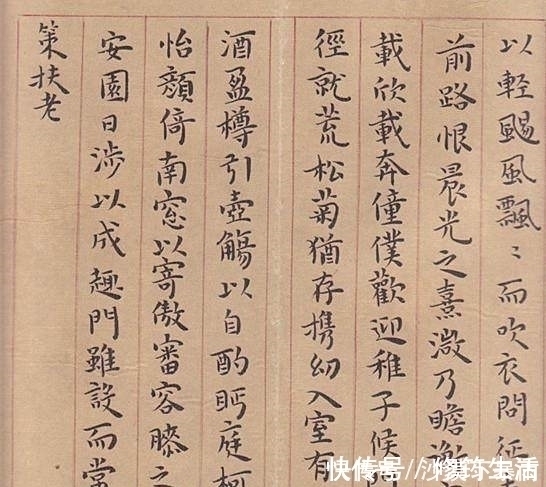 以輕颺風飄〻而吹衣問征
前路恨晨光之熹微乃瞻衡
載欣載奔僮僕歡迎稚子候
徑就荒松菊猶存携幼入室有
酒盈樽引壺觴以自酌眄庭柯
怡顏倚南窓以寄傲審容膝之
安園日涉以成趣門雖設而常
策扶老
快传号/
生活